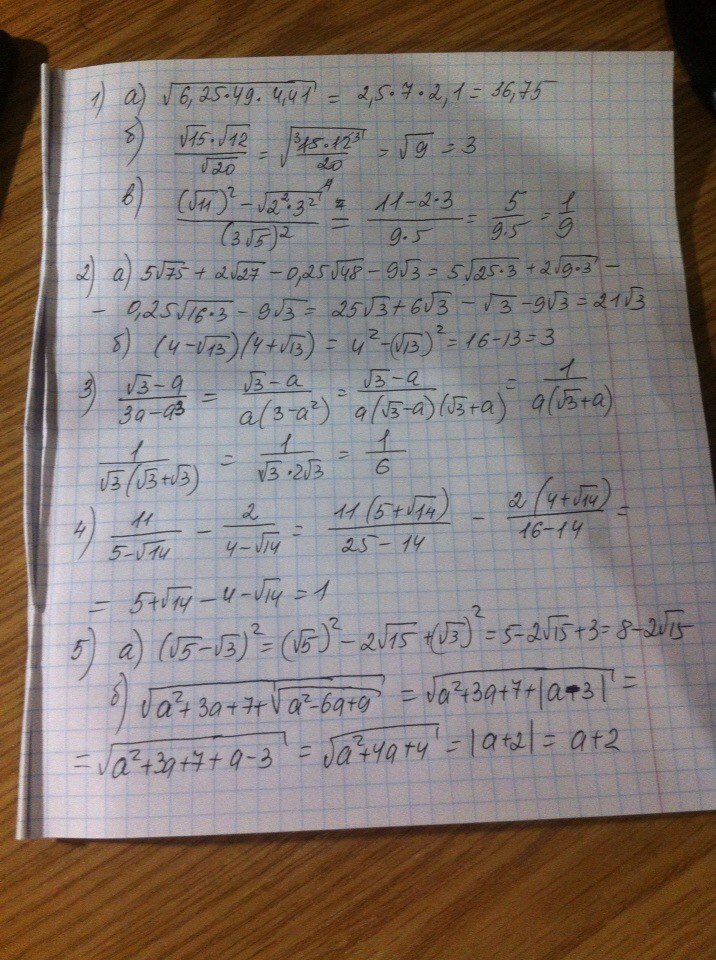 1) а) √(6,25·49·4,41) = 2,5·7·2,1 = 36,75
б) (√15·√12)/√20 = √((15·12)/20) = √9 = 3
в) ((√11)² - √(2²·3²))/(3√5)² = (11-2·3)/(9·5) = 5/(9·5) = 1/9
2) а) 5√75 + 2√27 - 0,25√48 - 9√3 = 5√(25·3) + 2√(9·3) -
- 0,25√(16·3) - 9√3 = 25√3 + 6√3 - √3 - 9√3 = 21√3
б) (4-√13)(4+√13) = 4² - (√13)² = 16-13 = 3
3) (√3-a)/(3a-a³) = (√3-a)/(a(3-a²)) = (√3-a)/(a(√3-a)(√3+a)) = 1/(a(√3+a))
1/(√3(√3+√3)) = 1/(√3·2√3) = 1/6
4) 11/(5-√14) - 2/(4-√14) = (11(5+√14))/(25-14) - (2(4+√14))/(16-14) =
= 5+√14 - 4 - √14 = 1
5) а) (√5-√3)² = (√5)² - 2√15 + (√3)² = 5-2√15+3 = 8-2√15
б) √(a²+3a+7+√(a²-6a+9)) = √(a²+3a+7+|a-3|) =
= √(a²+3a+7+a-3) = √(a²+4a+4) = |a+2| = a+2